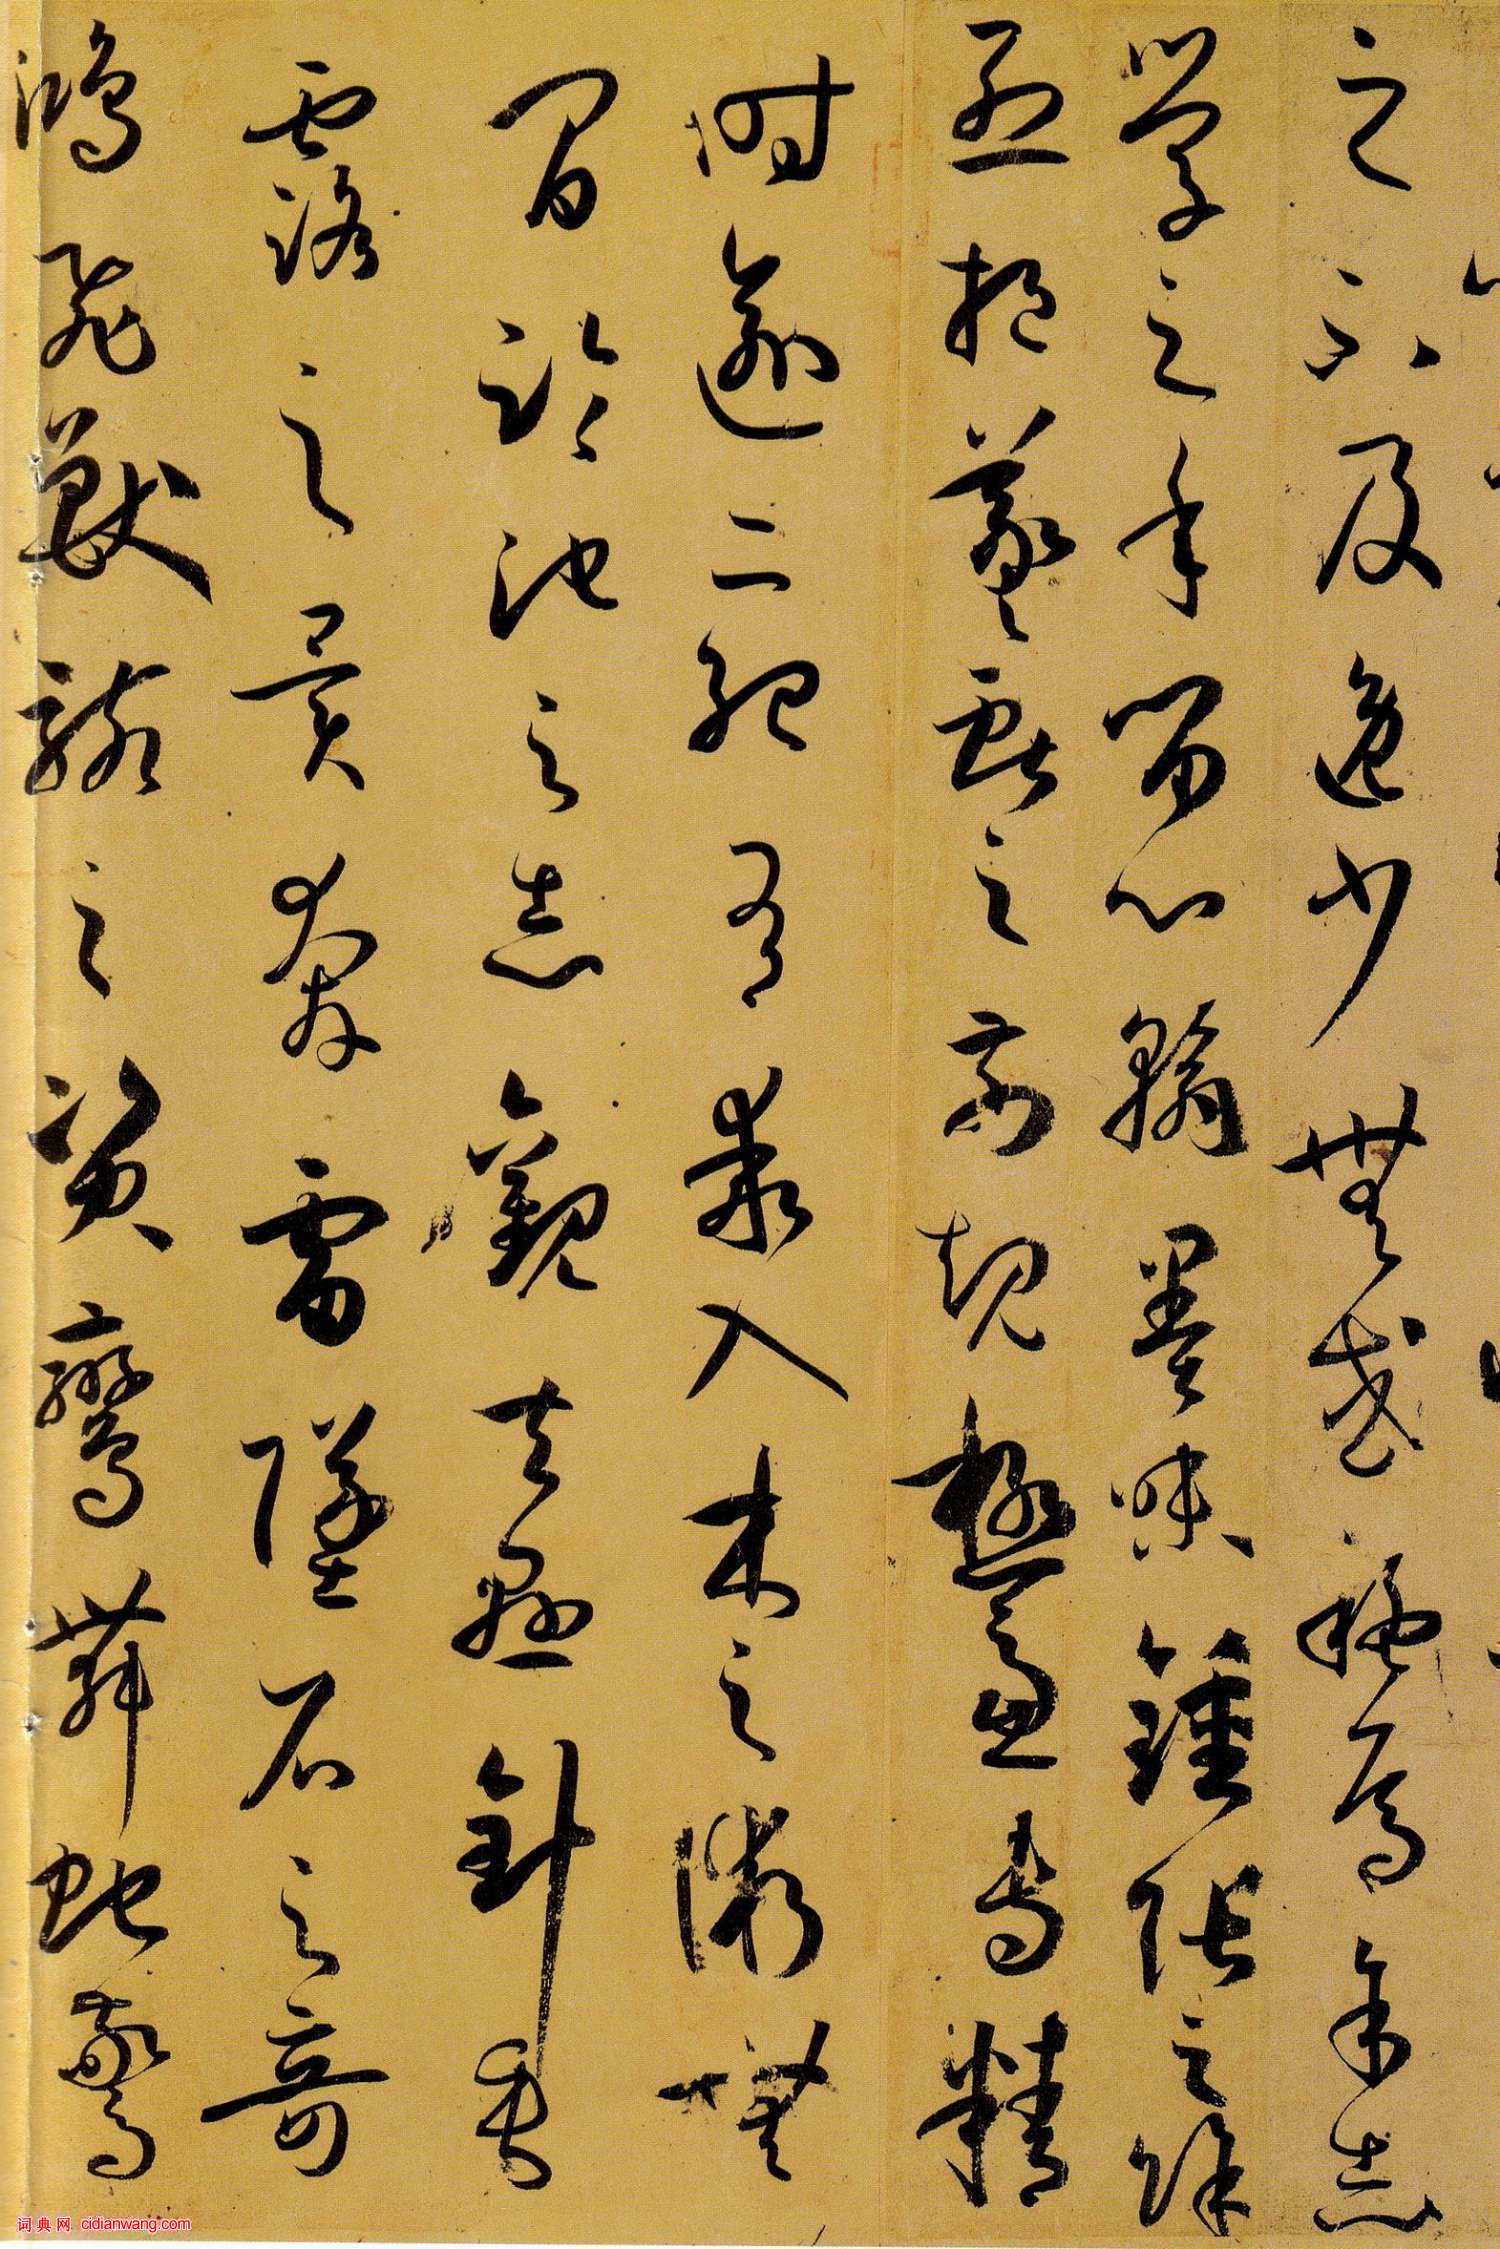 之不及逸少無或疑焉余志
學之年留心翰墨味鍾張之餘
烈挹羲獻之前規極慮專精
時逾二紀有乖入木之術無
間臨池之志觀夫懸針垂
露之異奔雷墜石之奇
鴻飛獸駭之資鸞舞蛇驚
词典网 cidianwang.com